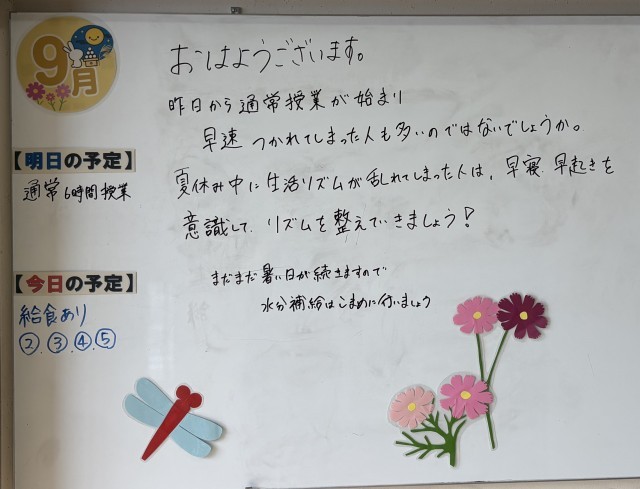 9月
おはようございます。
昨日から通常授業が始まり
早速 つかれてしまった人も多いのではないでしょうか。
夏休み中に生活リズムが乱れてしまった人は、早寝、早起きを
意識して、リズムを整えていきましょう!
まだまだ暑い日が続きますので
水分補給はこまめに行いましょう
【明日の予定】
通常6時間授業
【今日の予定】
給食あり
②.③.④.⑤